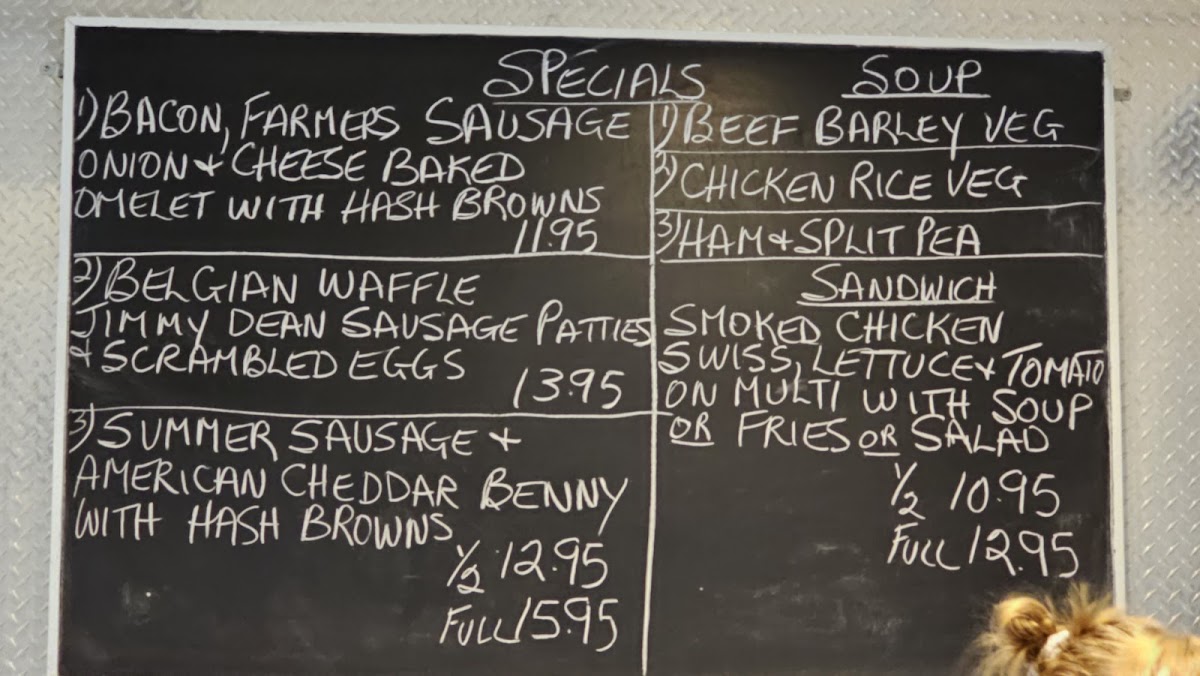 SPECIALS
1) BACON, FARMERS SAUSAGE
ONION & CHEESE BAKED
OMELET WITH HASH BROWNS
11.95
2) BELGIAN WAFFLE
JIMMY DEAN SAUSAGE PATTIES
& SCRAMBLED EGGS
13.95
3) SUMMER SAUSAGE &
AMERICAN CHEDDAR BENNY
WITH HASH BROWNS
1/2 12.95
FULL 15.95
SOUP
1) BEEF BARLEY VEG
2) CHICKEN RICE VEG
3) HAM & SPLIT PEA
SANDWICH
SMOKED CHICKEN
SWISS, LETTUCE & TOMATO
ON MULTI WITH SOUP
OR FRIES OR SALAD
1/2 10.95
FULL 12.95